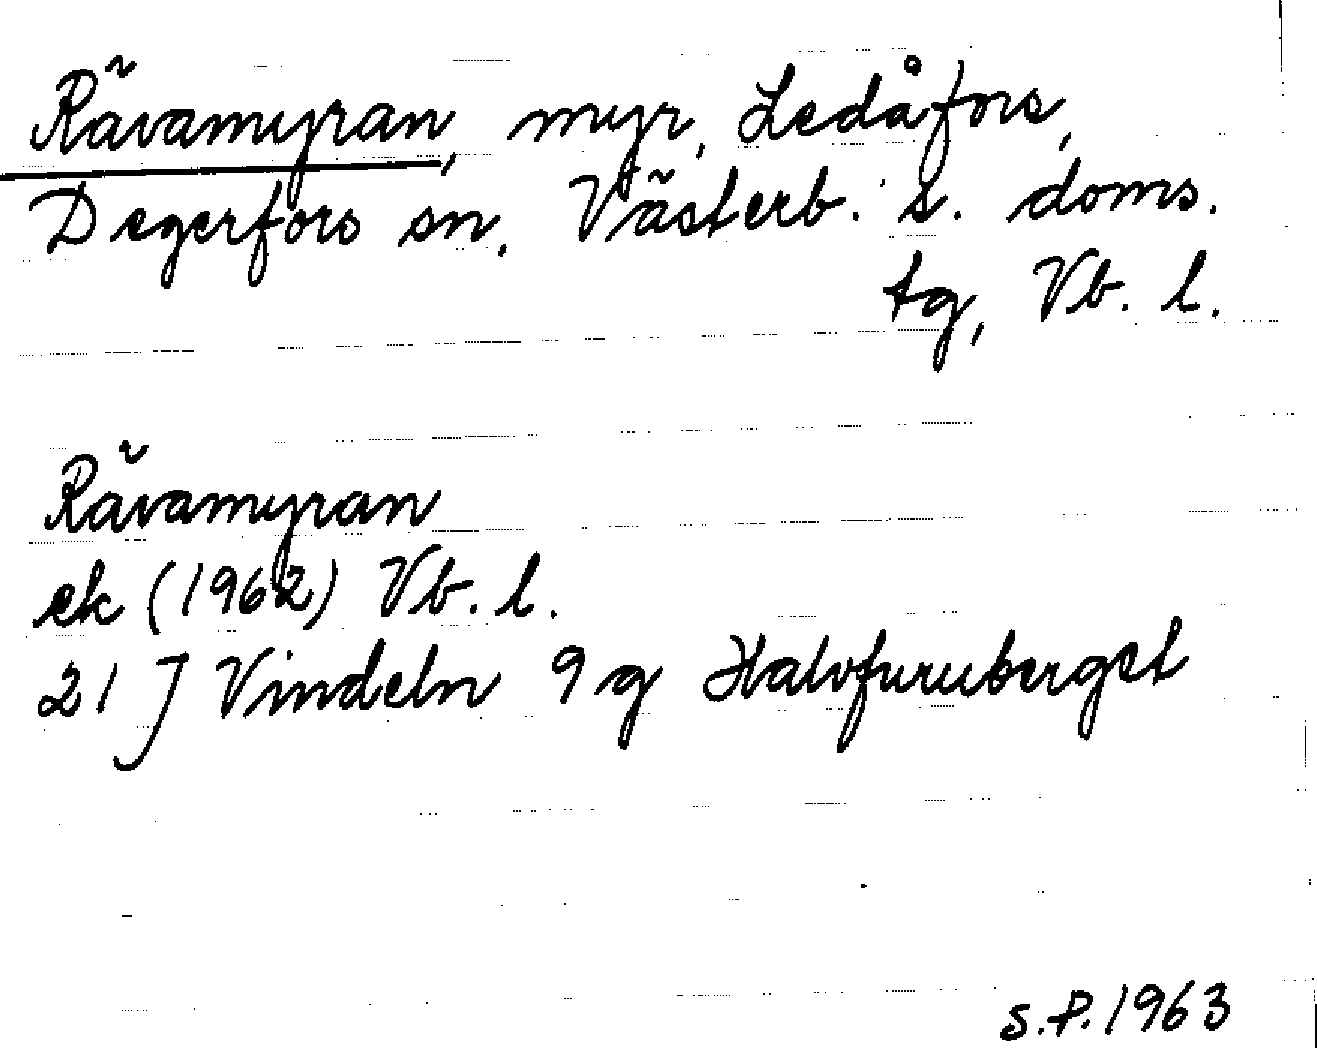 Rävamyran, myr, Ledåfors,
Degerfors sn. Västerb. s. doms.
tg, Vb. l.
Rävamyran
ek (1962) Vb. l.
21 J Vindeln 9 g Halvfuruberget
S.P. 1963